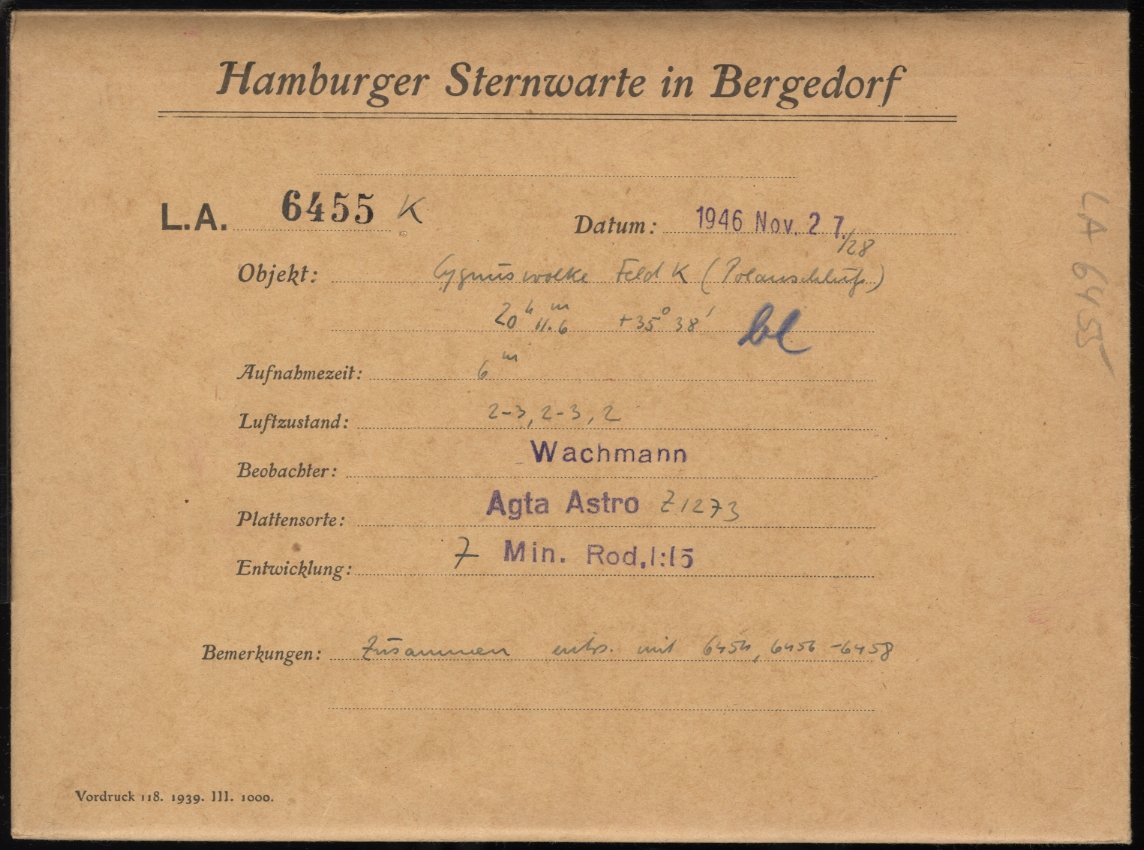 Hamburger Sternwarte in Bergedorf
L.A. 6455 K
Datum: 1946 Nov. 27./28
Objekt: Cygnuswolke Feld K (Polanschluß)
20ʰ 11.6ᵐ +35° 38' bl
Aufnahmezeit: 6ᵐ
Luftzustand: 2-3, 2-3, 2
Beobachter: Wachmann
Plattensorte: Agfa Astro Z1273
Entwicklung: 7 Min. Rod, 1:15
Bemerkungen: Zusammen entw. mit 6454, 6456-6458
Vordruck 118. 1939. III. 1000.
LA 6455